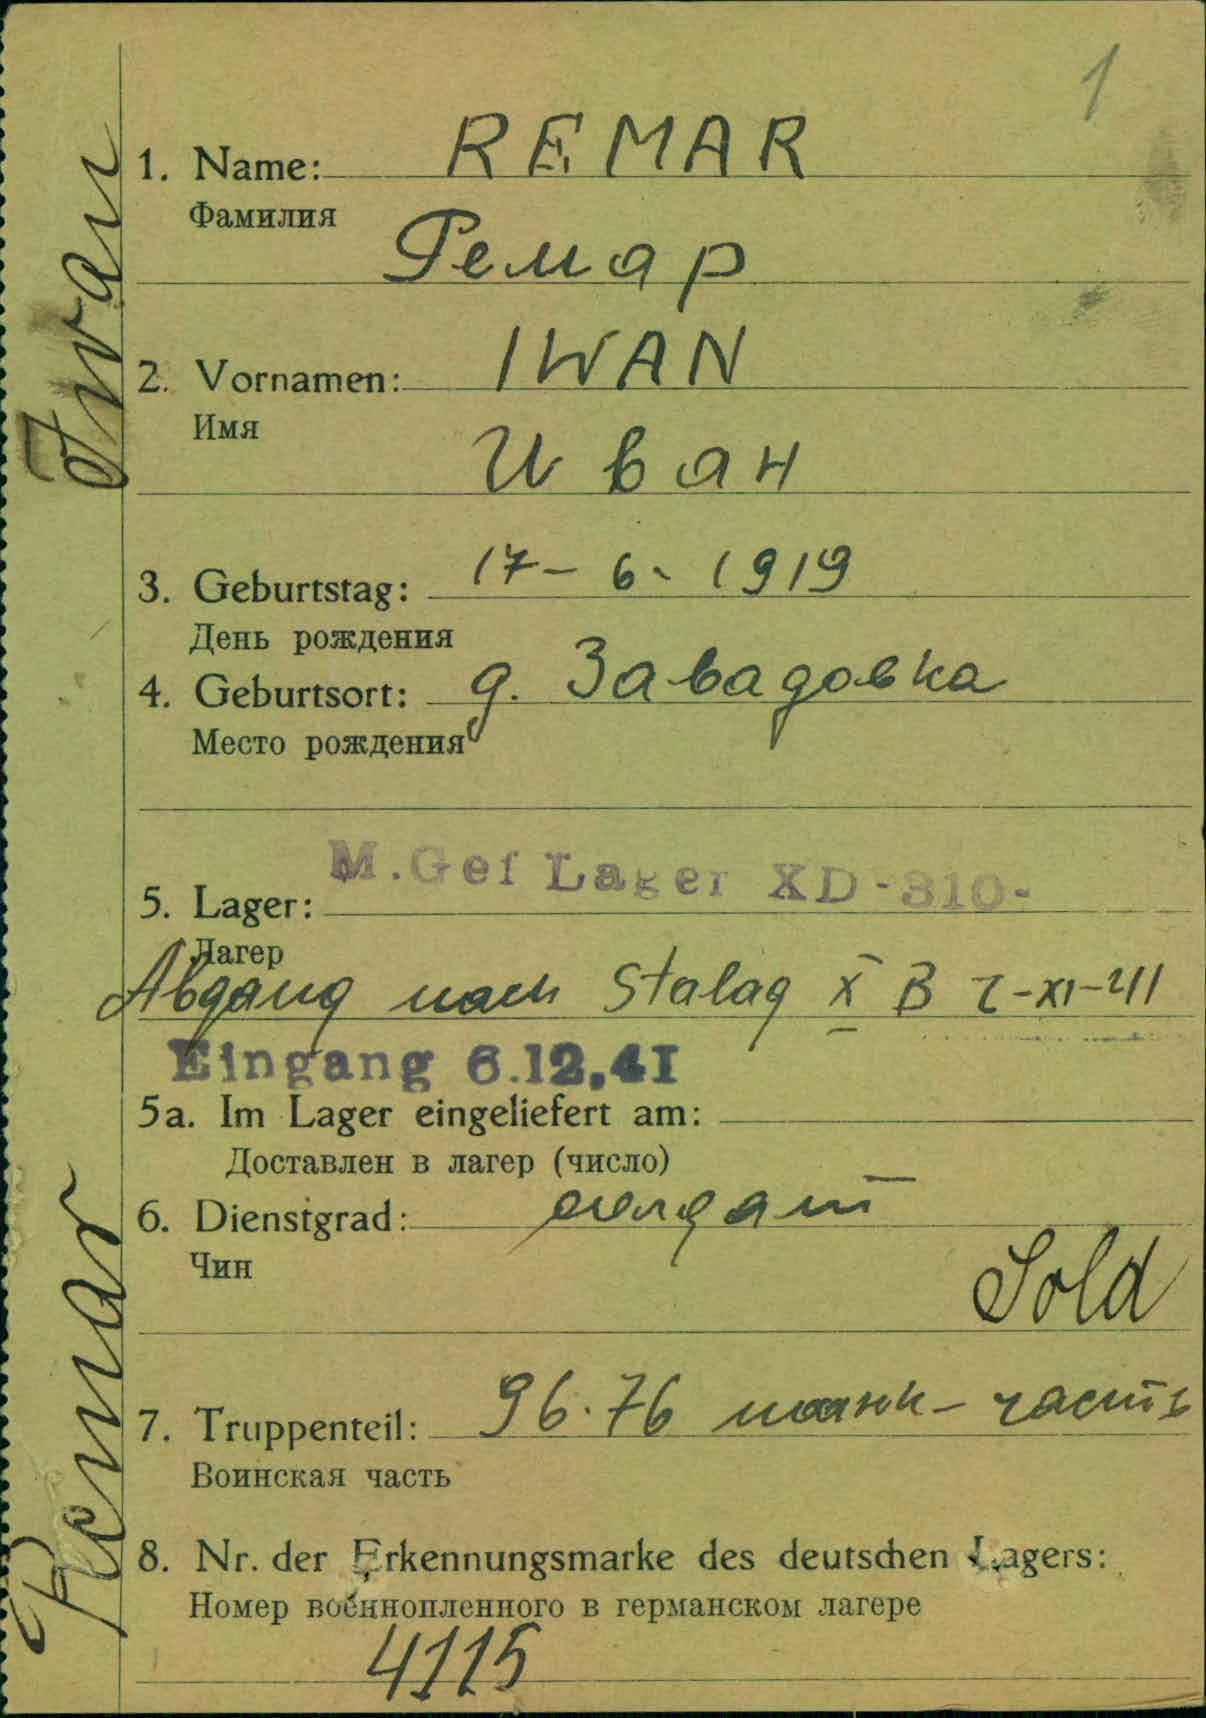 1
1. Name: REMAR
Фамилия
Ремар
2. Vornamen: IWAN
Имя
Иван
3. Geburtstag: 17-6-1919
День рождения
4. Geburtsort: д. Завадовка
Место рождения
M.Gef Lager XD-310-
5. Lager:
Лагер
Abgang nach Stalag X B -XI-41
Eingang 6.12.41
5a. Im Lager eingeliefert am:
Доставлен в лагер (число)
6. Dienstgrad: солдат
Чин
Sold
7. Truppenteil: 96.76 танк-часть
Воинская часть
8. Nr. der Erkennungsmarke des deutschen Lagers:
Номер военнопленного в германском лагере
4115
Remar Iwan